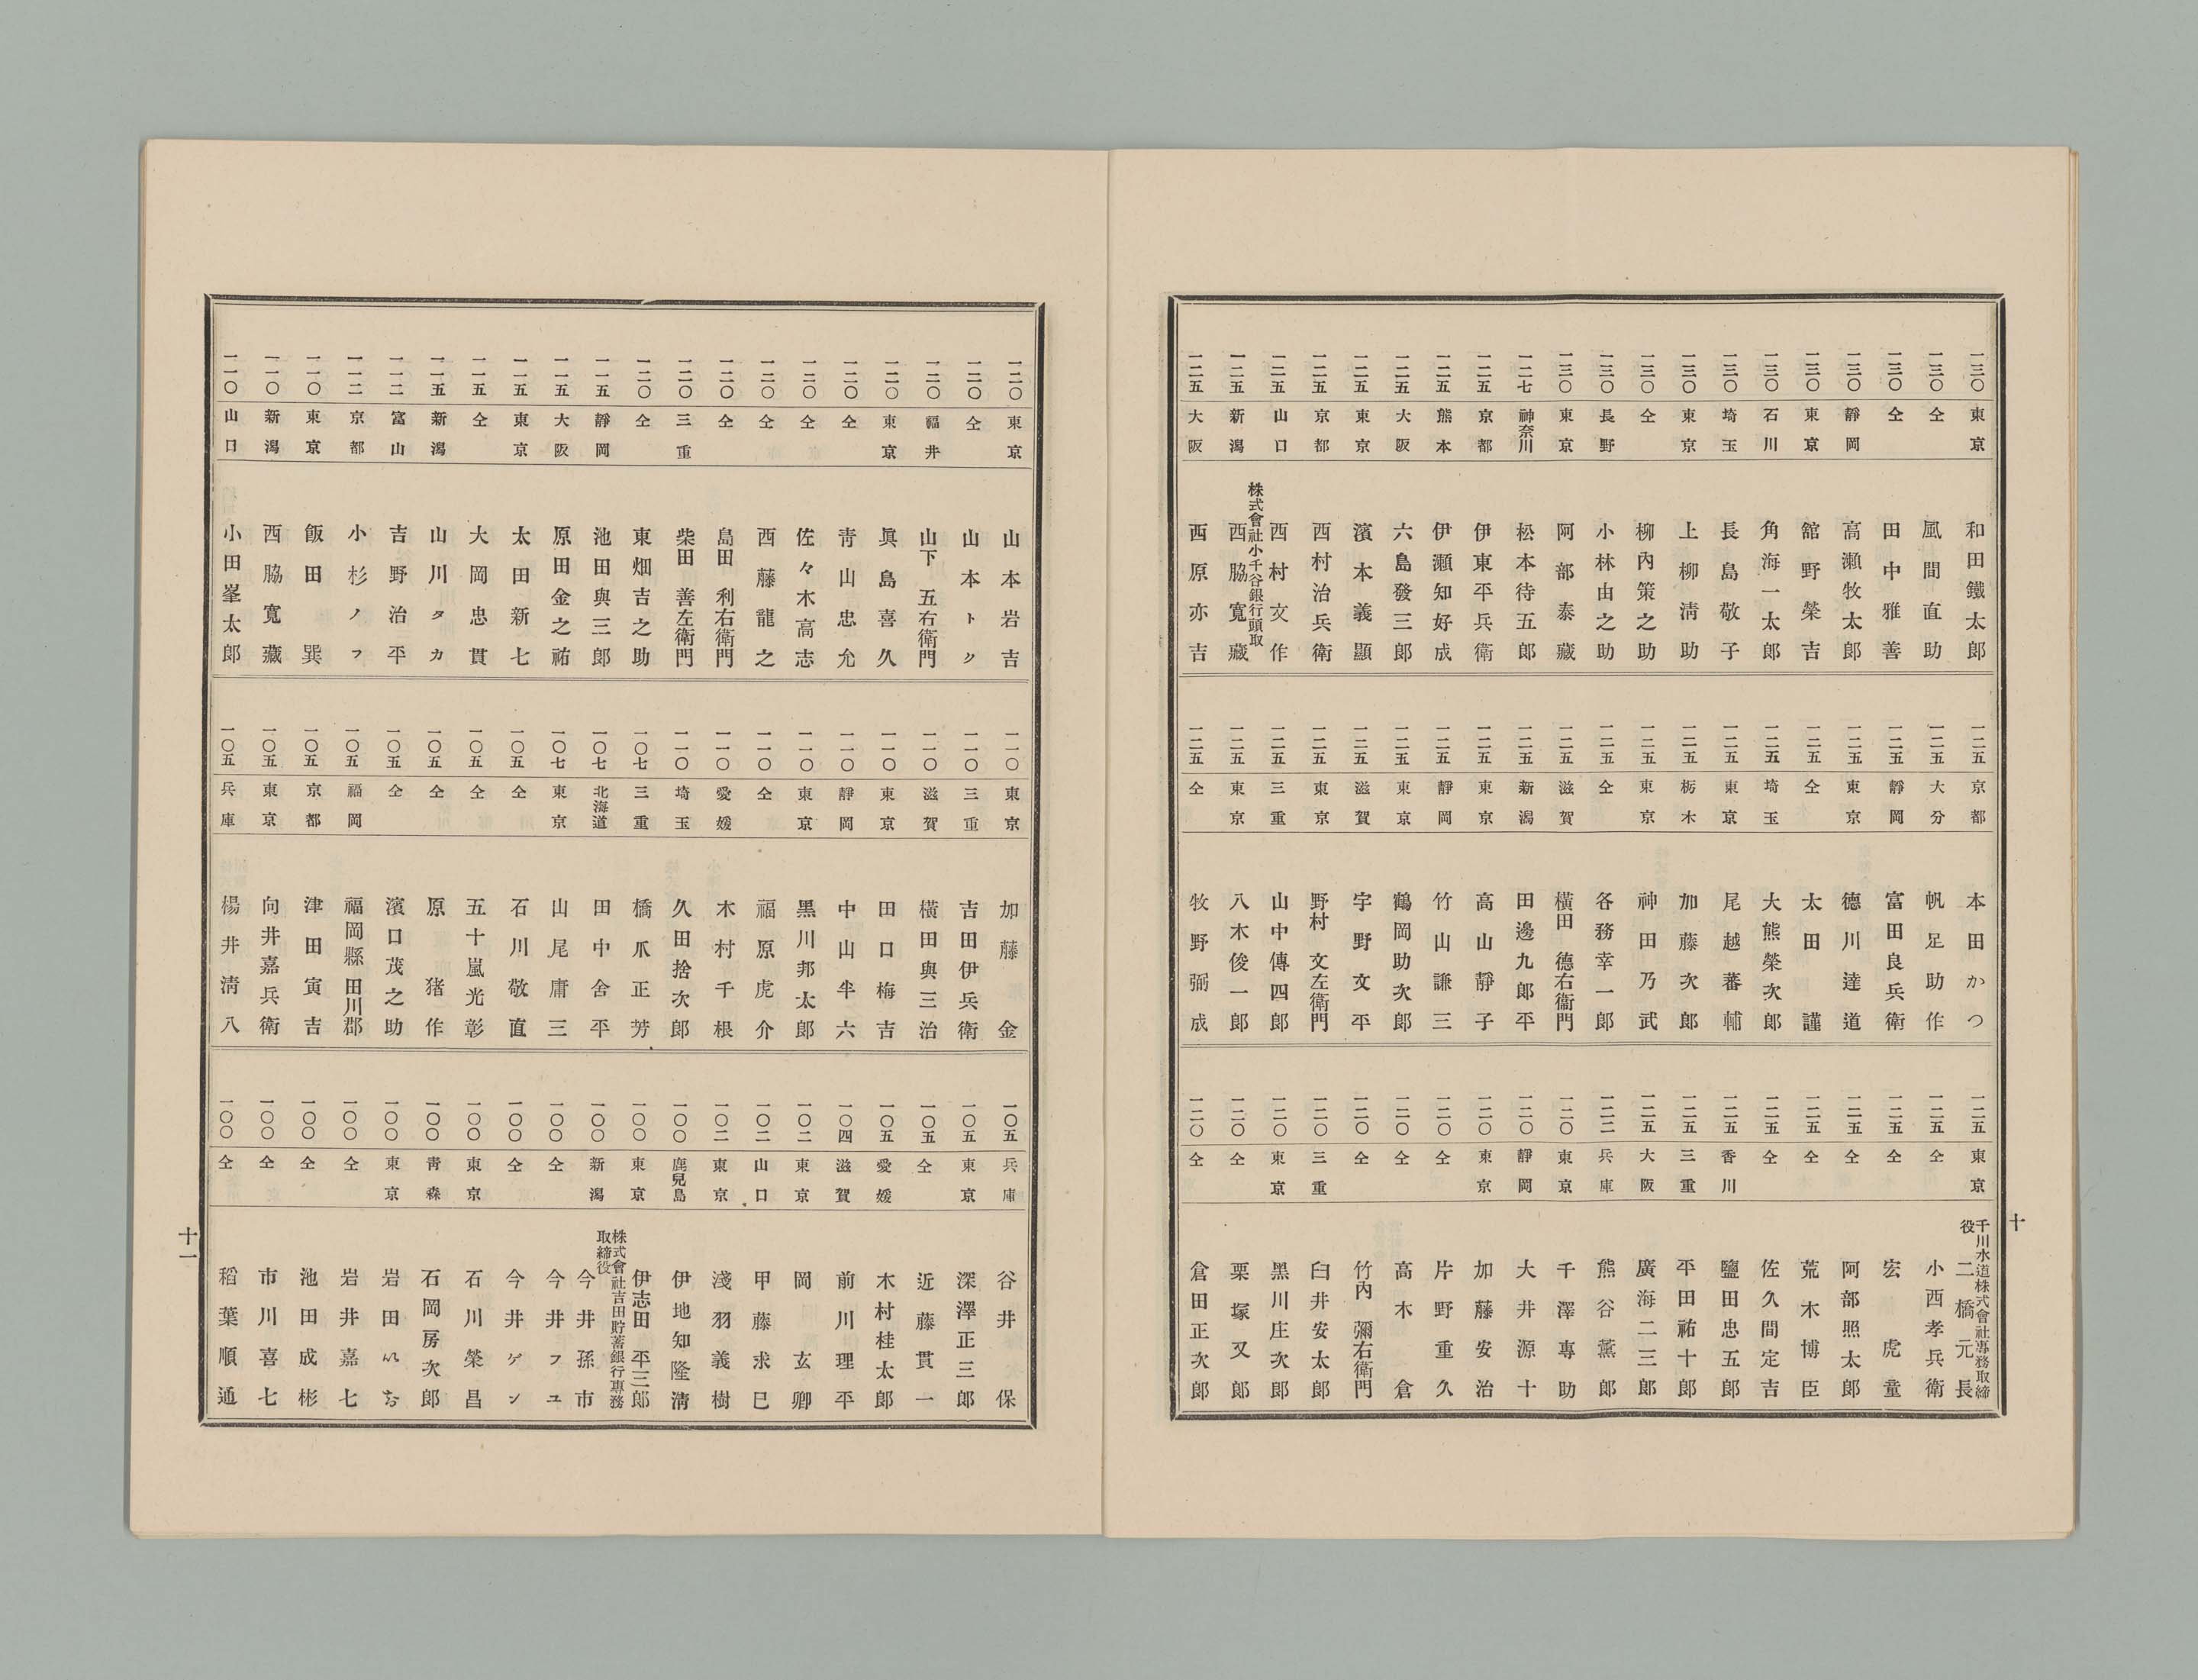 一三〇 東京 和田鐵太郎
一三〇 仝 風間直助
一三〇 仝 田中雅善
一三〇 靜岡 高瀬牧太郎
一三〇 東京 舘野榮吉
一三〇 石川 角海一太郎
一三〇 埼玉 長島敬子
一三〇 東京 上柳淸助
一三〇 仝 柳內策之助
一三〇 長野 小林由之助
一三〇 東京 阿部泰藏
一二七 神奈川 松本待五郎
一二五 京都 伊東平兵衛
一二五 熊本 伊瀬知好成
一二五 大阪 六島發三郎
一二五 東京 濱本義顯
一二五 京都 西村治兵衛
一二五 山口 西村文作
一二五 新潟 株式會社小千谷銀行頭取 西脇寬藏
一二五 大阪 西原亦吉
一二五 京都 本田かつ
一二五 大分 帆足助作
一二五 靜岡 富田良兵衛
一二五 東京 德川達道
一二五 仝 太田謹
一二五 埼玉 大熊榮次郎
一二五 東京 尾越蕃輔
一二五 栃木 加藤次郎
一二五 東京 神田乃武
一二五 仝 各務幸一郎
一二五 滋賀 橫田德右衞門
一二五 新潟 田邊九郎平
一二五 東京 高山靜子
一二五 靜岡 竹山謙三
一二五 東京 鶴岡助次郎
一二五 滋賀 宇野文平
一二五 東京 野村文左衞門
一二五 三重 山中傳四郎
一二五 東京 八木俊一郎
一二五 仝 牧野弼成
一二五 東京 千川水道株式會社專務取締役 二橋元長
一二五 仝 小西孝兵衛
一二五 仝 宏虎童
一二五 仝 阿部照太郎
一二五 仝 荒木博臣
一二五 仝 佐久間定吉
一二五 香川 鹽田忠五郎
一二五 三重 平田祐十郎
一二五 大阪 廣海二三郎
一二二 兵庫 熊谷薰郎
一二〇 東京 千澤專助
一二〇 靜岡 大井源十
一二〇 東京 加藤安治
一二〇 仝 片野重久
一二〇 仝 高木倉
一二〇 仝 竹內彌右衞門
一二〇 三重 臼井安太郎
一二〇 東京 黑川庄次郎
一二〇 仝 栗塚又郎
一二〇 仝 倉田正次郎
十
一二〇 東京 山本岩吉
一二〇 仝 山本トク
一二〇 福井 山下五右衞門
一二〇 東京 眞島喜久
一二〇 仝 靑山忠允
一二〇 仝 佐々木高志
一二〇 仝 西藤龍之
一二〇 仝 島田利右衞門
一二〇 三重 柴田善左衞門
一二〇 仝 東畑吉之助
一一五 靜岡 池田與三郎
一一五 大阪 原田金之祐
一一五 東京 太田新七
一一五 仝 大岡忠貫
一一五 新潟 山川タカ
一一二 富山 吉野治平
一一二 京都 小杉ノフ
一一〇 東京 飯田巽
一一〇 新潟 西脇寬藏
一一〇 山口 小田峯太郎
一一〇 東京 加藤金
一一〇 三重 吉田伊兵衛
一一〇 滋賀 橫田與三治
一一〇 東京 田口梅吉
一一〇 靜岡 中山半六
一一〇 東京 黑川邦太郎
一一〇 仝 福原虎介
一一〇 愛媛 木村千根
一一〇 埼玉 久田捨次郎
一〇七 三重 橋爪正芳
一〇七 北海道 田中舍平
一〇七 東京 山尾庸三
一〇五 仝 石川敬直
一〇五 仝 五十嵐光彰
一〇五 仝 原猪作
一〇五 仝 濱口茂之助
一〇五 福岡 福岡縣田川郡
一〇五 京都 津田寅吉
一〇五 東京 向井嘉兵衛
一〇五 兵庫 楊井淸八
一〇五 兵庫 谷井保
一〇五 東京 深澤正三郎
一〇五 仝 近藤貫一
一〇五 愛媛 木村桂太郎
一〇四 滋賀 前川理平
一〇二 東京 岡玄卿
一〇二 山口 甲藤求巳
一〇二 東京 淺羽義樹
一〇〇 鹿兒島 伊地知隆淸
一〇〇 東京 伊志田平三郎
一〇〇 新潟 株式會社吉田貯蓄銀行專務取締役 今井孫市
一〇〇 仝 今井フユ
一〇〇 仝 今井ゲン
一〇〇 東京 石川榮昌
一〇〇 靑森 石岡房次郎
一〇〇 東京 岩田
一〇〇 仝 岩井嘉七
一〇〇 仝 池田成彬
一〇〇 仝 市川喜七
一〇〇 仝 稻葉順通
十一